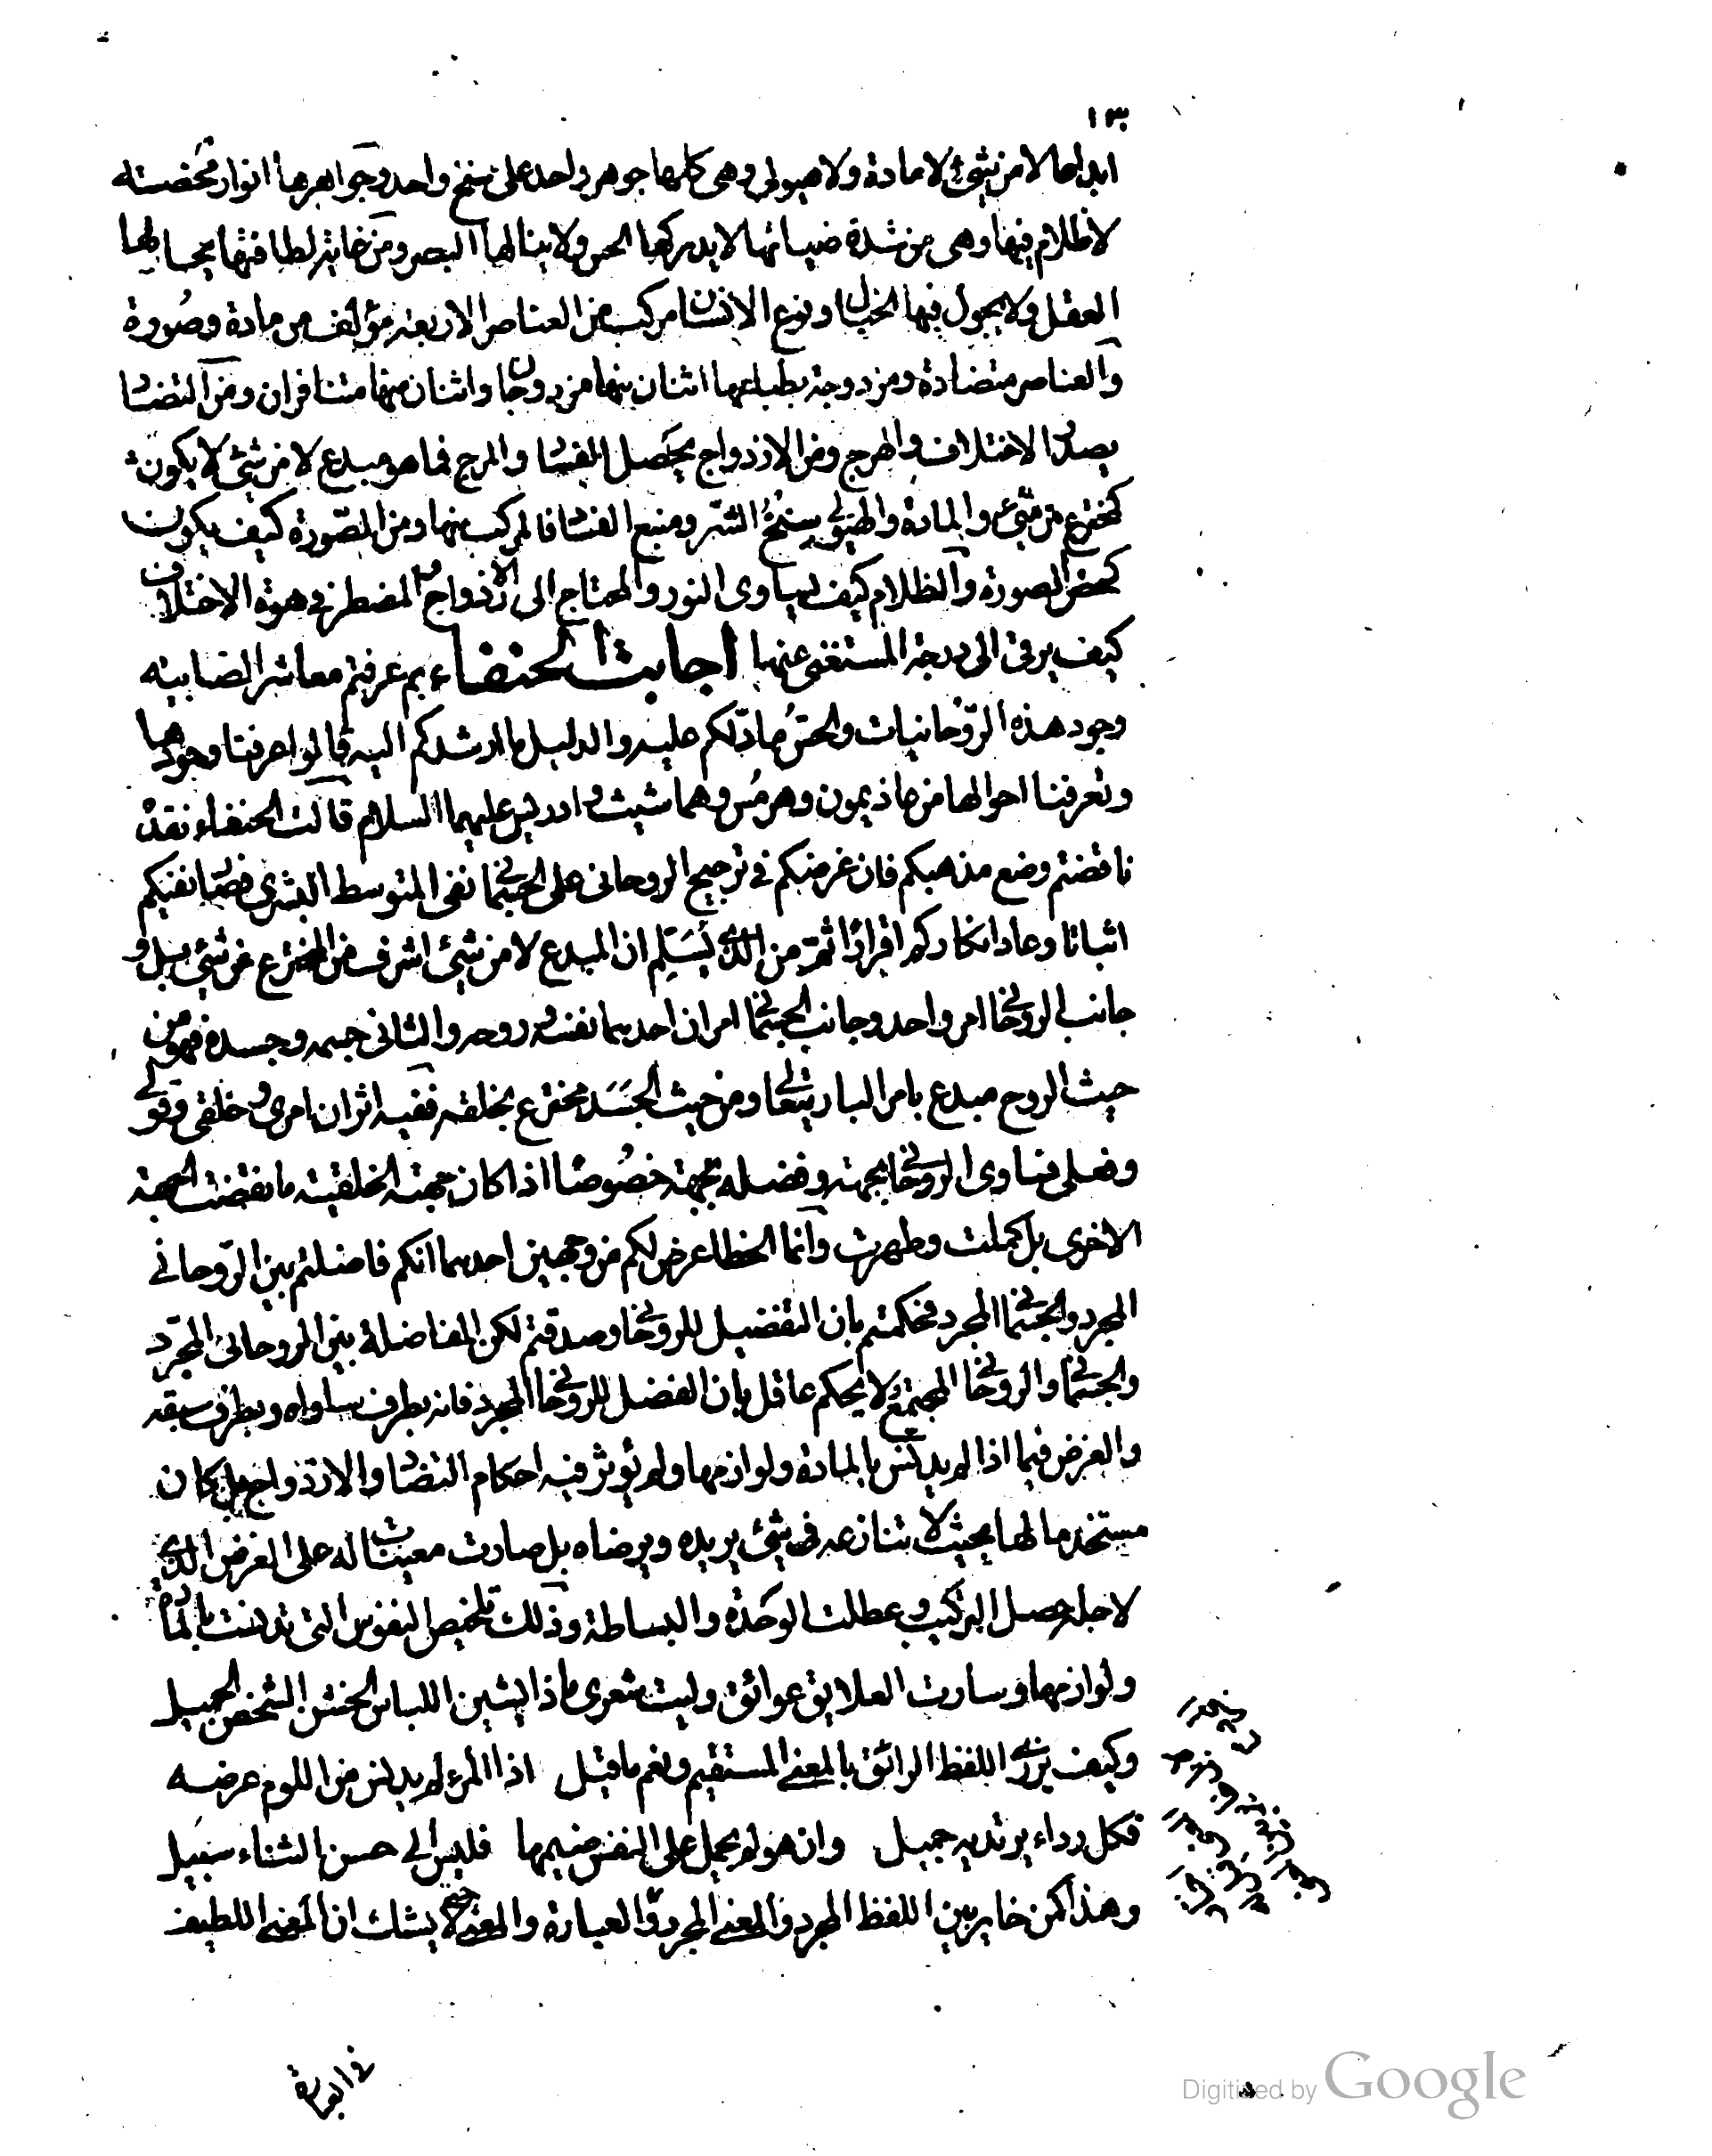 ١٣
ابداعا لا من شئ لا مادة ولا هيولى وهى كلها جوهر واحد على سنخ واحد وجواهرها انوار محضته
لاظلام فيها وهى من شدة ضيائها لا يدركها الحس ولا ينالها البصر ومن غاية لطافتها يحار لها
العقل ولا يجول فيها الخيال ونوع الانسان مركب من العناصر الاربعة مؤلف من مادة وصُورة
والعناصر متضادة ومزدوجة بطباعها اثنان منها مزدوجان واثنان منها متنافران ومن التضاد
يصدر الاختلاف والهرج ومن الازدواج يحصل الفساد والمرج فما هو مبدع لا من شئ لا يكون
كمخترع من شئ والمادة والهيولى سنخُ الشر ومنبع الفساد فالمركب منها ومن الصّورة كيف يكون
كمحض الصورة والظلام كيف يساوى النور والمحتاج الى الازدواج المضطر فى هوة الاختلاف
كيف يرقى الى درجة المستغنى عنها اجابت الحنفاء بم عرفتم معاشر الصابية
وجود هذه الرّوحانيات والحسُ مادّلكم عليه والدليل ما ارشدكم اليه قالوا عرفنا وجودها
وتعرفنا احوالها من عاذيمون وهرمُس وهما شيث وادريس عليهما السلام قالت الحنفاء نقد
ناقضتم وضع مذهبكم فان غرضكم فى ترجيح الروحانى على الجسمانى نفى المتوسط البشرى فصار نفيكم
اثباتا وعاد انكاركم اقرارًا ثم من الذى يُسَلِم ان المبدع لا من شئ اشرف من المخترع عن شئ بل و
جانب الروحانى امر واحد وجانب الجسمانى امران احدهما نفسه وروحه والثانى جسمه وجسده فهو من
حيث الروح مبدع بامر البارى تعالى ومن حيث الجَسَد مخترع بخلقه ففيه اثران امرى وخلقى وقولى
وفعلى فساوى الروحانى بجهة وفضله بجهة خصُوصًا اذا كان جهته الخلقية ما نقضت الجهة
الاخرى بل كملت وطهرت وانما الخطا عرض لكم من وجهين احدهما انكم فاضلتم بين الرّوحانى
المجرد والجسمانى المجرد فحكمتم بان التفضيل للروحانى وصدقتم لكن المفاضلة بين الروحانى المجرّد
والجسمانى والروحانى المجتمع لا يحكم عاقل بان الفضل للروحانى المجرد فانه بطرف ساواه وبطرف سبقه
والغرض فيما اذا لم يدنس بالمادة ولوازمها ولم يؤثر فيه احكام التضاد والازدواج بل كان
مستخدما لها بحيث لا تنازعه فى شئ يريده ويرضاه بل صارت معينات له على الغرض الذى
لاجله حصل التركيب وعطلت الوحدة والبساطة وذلك تلخيص النفوس التى تدنست بالمادة
ولوازمها وسارت العلايق عوائق وليت شعرى ماذا يشين اللباس الخشن الشخص الجميل
وكيف يزرى اللفظ الرائق بالمعنى المستقيم ونعم ما قيل اذا المرء لم يدنس من اللوم عرضه
فكل رداء يرتديه جميل وان هو لم يحمل على النفس ضيمها فليس الى حسن الثناء سبيل
وهذا كمن خاير بين اللفظ المجرد والمعنى المجرد والعبارة والمعنى لا يشك ان المعنى اللطيف